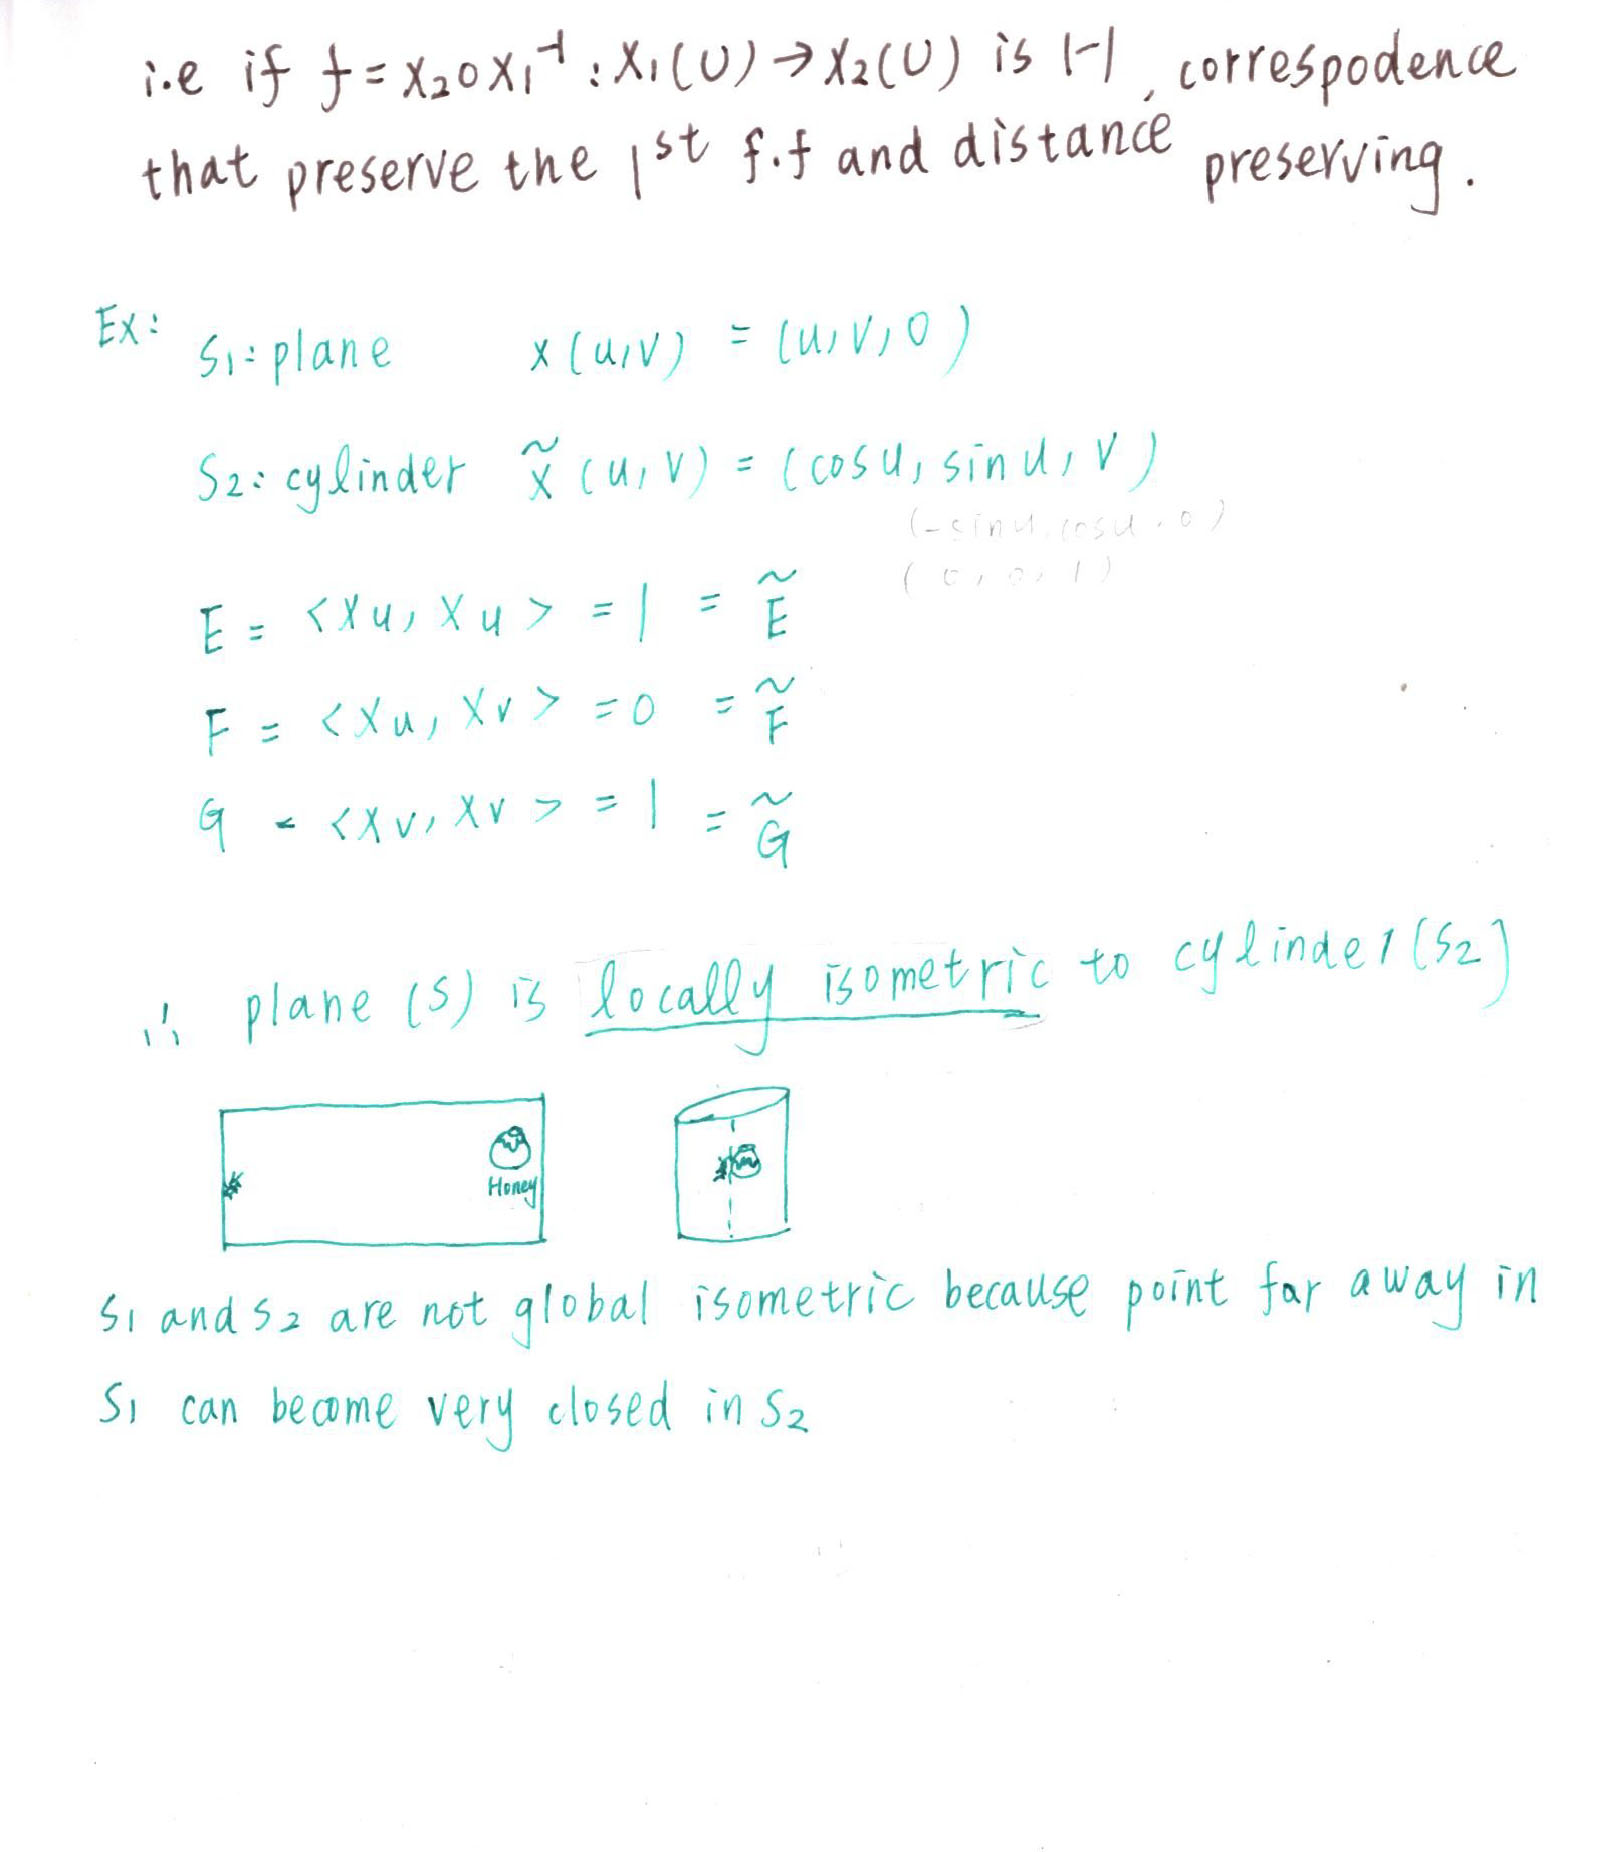 i.e if f = x₂ o x₁⁻¹ : x₁(U) → x₂(U) is 1-1, correspodence
that preserve the 1st f.f and distance preserving.
Ex:
S₁: plane x(u,v) = (u,v,0)
S₂: cylinder x̃(u,v) = (cosu, sinu, v)
(-sinu, cosu, 0)
(0, 0, 1)
E = <Xu, Xu> = 1 = Ẽ
F = <Xu, Xv> = 0 = F̃
G = <Xv, Xv> = 1 = G̃
∴ plane (S) is locally isometric to cylinder (S₂)
Honey
S₁ and S₂ are not global isometric because point far away in
S₁ can become very closed in S₂